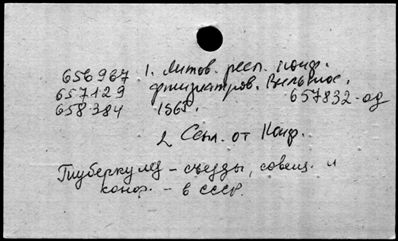 656967 1. Литов. респ. конф.
657129 фтизиатров. Вильнюс.
658384 1965. 657832-од
2 Ссыл. от Конф.
Туберкулез - съезды, совещ. и
конф. - в СССР.